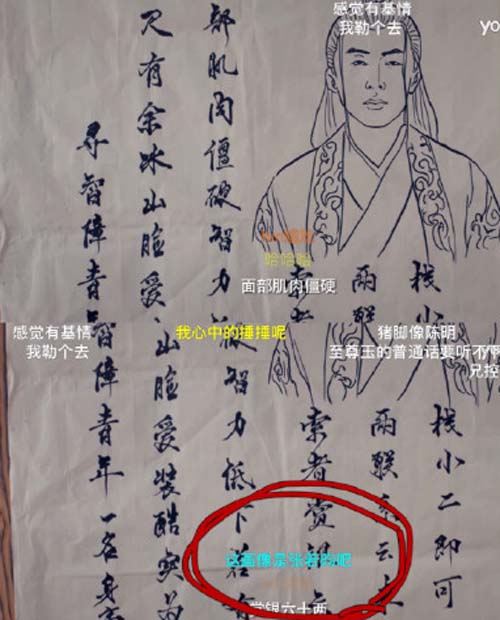 感觉有基情
我勒个去
哈哈哈
面部肌肉僵硬
栈小
两联
索
部肌肉僵硬智力
尺有余冰山脸爱
寻智障青年
感觉有基情
我勒个去
我心中的捶捶呢
猪脚像陈明
至尊玉的普通话要听不
兄控
栈小二即可
两联系云来
索者赏银
智力低下若有
山脸爱装酷实为
智障青年一名身高
这画像是张若昀吧
赏银六十两